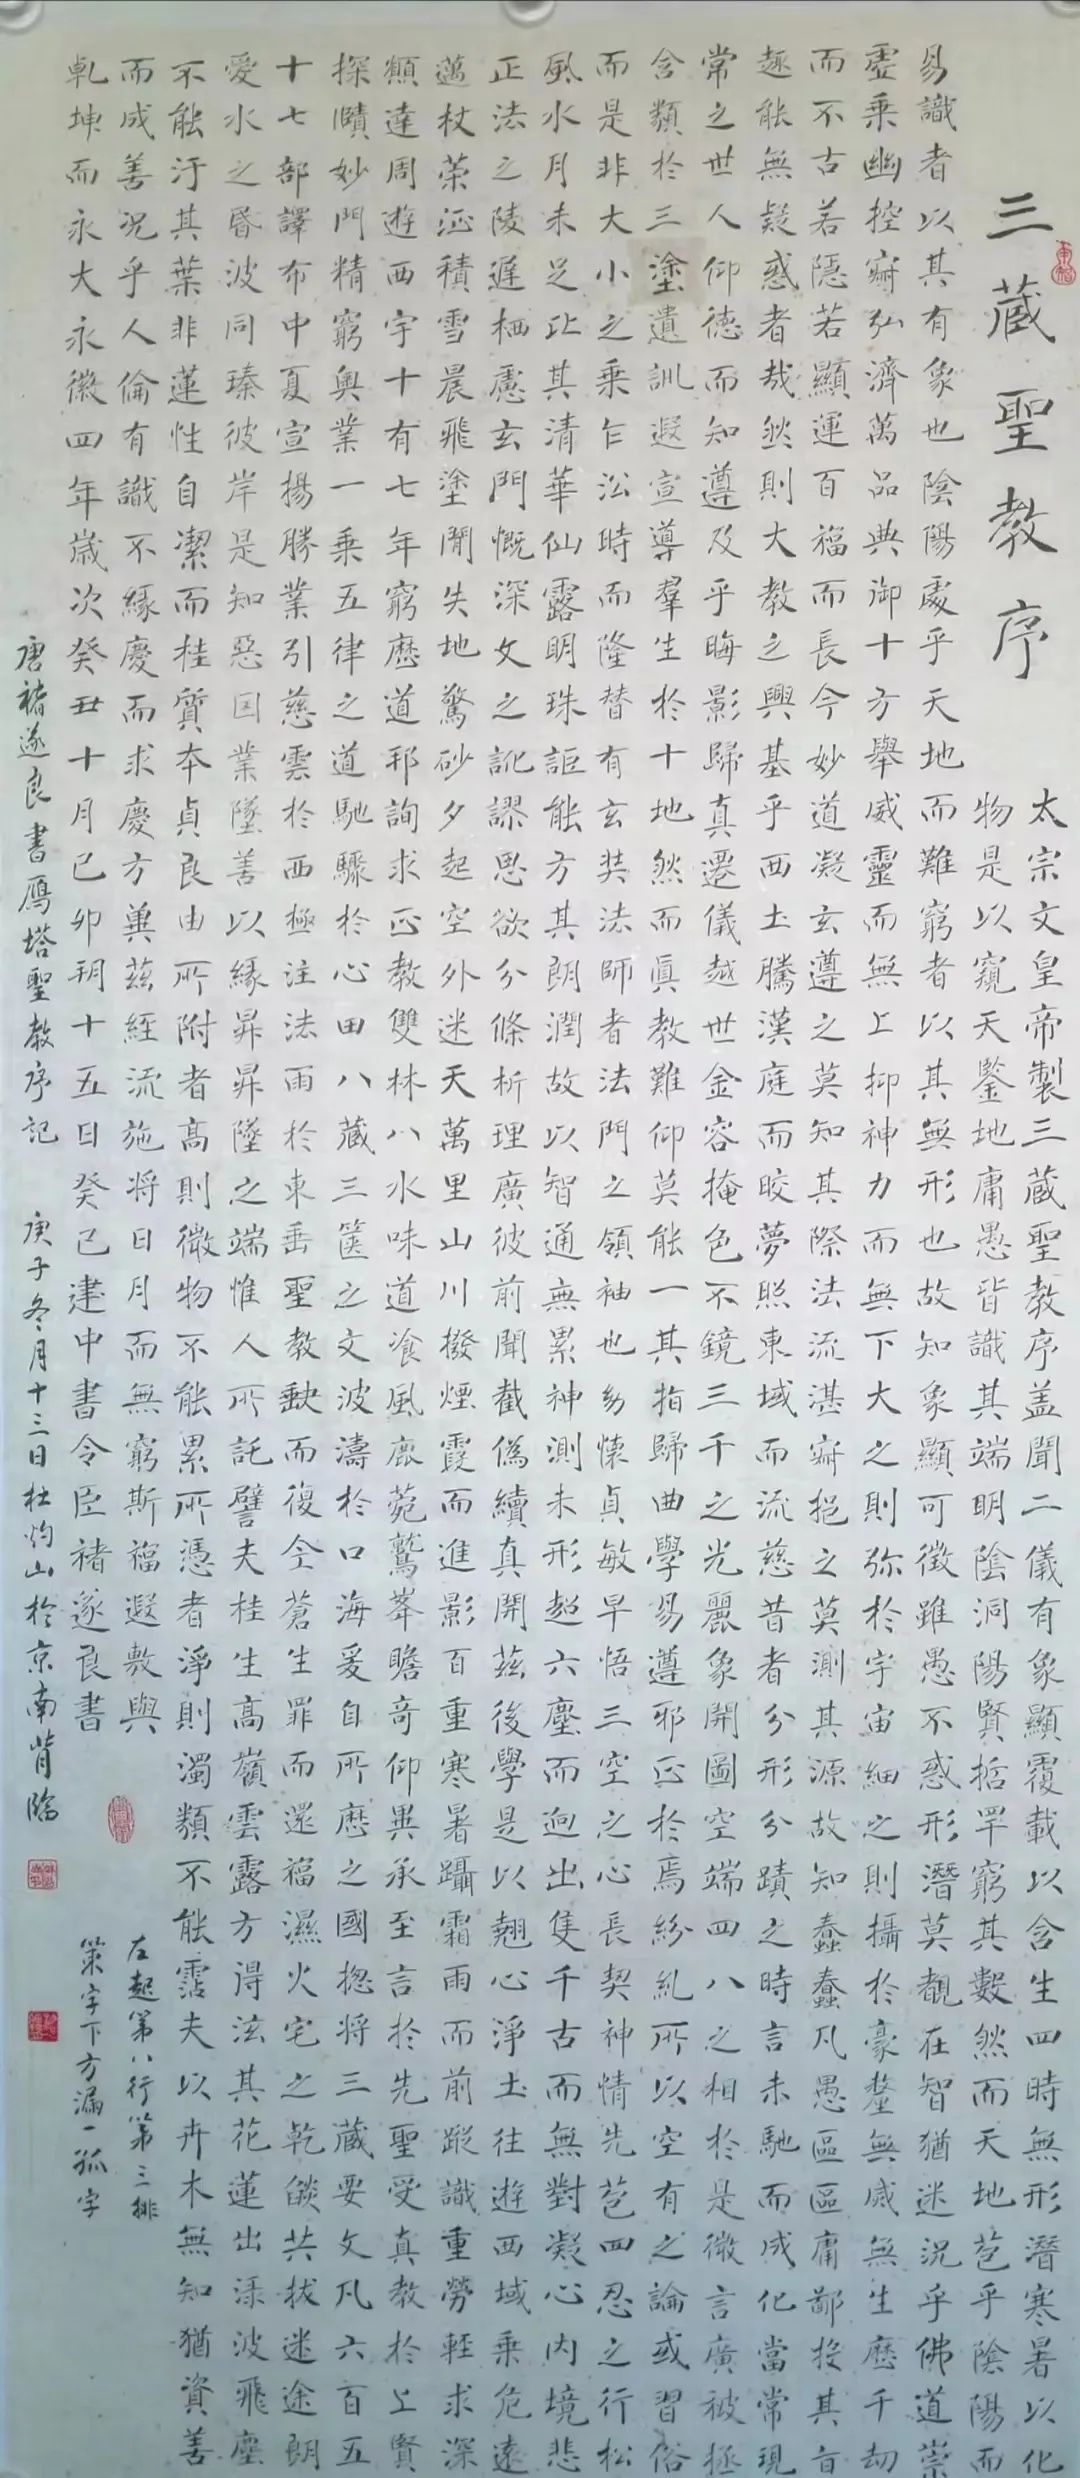 三藏聖教序
太宗文皇帝製三藏聖教序盖聞二儀有象顯覆載以含生四時無形潛寒暑以化
物是以窺天鑒地庸愚皆識其端明陰洞陽賢括罕窮其數然而天地苞乎陰陽而
易識者以其有象也陰陽處乎天地而難窮者以其無形也故知象顯可徵雖愚不惑形潛莫覩在智猶迷況乎佛道崇
虛乘幽控寂弘濟萬品典御十方舉威靈而無上抑神力而無下大之則弥於宇宙細之則攝於豪釐無滅無生歷千劫
而不古若隱若顯運百福而長今妙道凝玄遵之莫知其際法流湛寂挹之莫測其源故知蠢蠢凡愚區區庸鄙投其旨
趣能無疑惑者哉然則大教之興基乎西土騰漢庭而皎夢照東域而流慈昔者分形分蹟之時言未馳而成化當常現
常之世人仰德而知遵及乎晦影歸真遷儀越世金容掩色不鏡三千之光麗象開圖空端四八之相於是微言廣被拯
含類於三塗遺訓遐宣導羣生於十地然而真教難仰莫能一其指歸曲學易遵邪正於焉紛糺所以空有之論或習俗
而是非大小之乘乍沿時而隆替有玄奘法師者法門之領袖也幼懷貞敏早悟三空之心長契神情先苞四忍之行松
風水月未足比其清華仙露明珠詎能方其朗潤故以智通無累神測未形超六塵而迥出隻千古而無對凝心內境悲
正法之陵遲栖慮玄門慨深文之訛謬思欲分條析理廣彼前聞截偽續真開茲後學是以翹心淨土往遊西域乘危遠
邁杖策征積雪晨飛塗閒失地驚砂夕起空外迷天萬里山川撥煙霞而進影百重寒暑躡霜雨而前蹤識重勞輕求深
願達周遊西宇十有七年窮歷道邦詢求正教雙林八水味道飡風鹿菀鷲峯瞻奇仰異承至言於先聖受真教於上賢
探賾妙門精窮奧業一乘五律之道馳驟於心田八藏三篋之文波濤於口海爰自所歷之國揔將三藏要文凡六百五
十七部譯布中夏宣揚勝業引慈雲於西極注法雨於東垂聖教缺而復全蒼生罪而還福濕火宅之乾燄共拔迷途朗
愛水之昏波同臻彼岸是知惡因業墜善以緣昇昇墜之端惟人所託譬夫桂生高嶺雲露方得泫其花蓮出淥波飛塵
不能汙其葉非蓮性自潔而桂質本貞良由所附者高則微物不能累所憑者淨則濁類不能霑夫以卉木無知猶資善
而成善況乎人倫有識不緣慶而求慶方冀茲經流施將日月而無窮斯福遐敷與
乾坤而永大永徽四年歲次癸丑十月己卯朔十五日癸巳建中書令臣褚遂良書
唐褚遂良書鴈塔聖教序記 庚子冬月十三日杜灼山於京南背臨
左起第八行第三排
策字下方漏一孤字